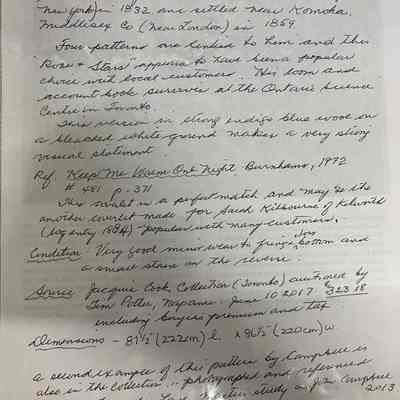 New York) in 1832 and settled near Komoka,
Middlesex Co (near London) in 1859
Four patterns are linked to him and this
"Rose & Stars" appears to have been a popular
choice with local customers. His loom and
account book survive at the Ontario Science
Centre in Toronto.
This version in strong indigo blue wool on
a bleached white ground makes a very strong
visual statement.
Ref. Keep Me Warm One Night Burnhams, 1972
# 481 p. 371
This coverlet is a perfect match and may be the
another coverlet made for Sarah Kilbourne of Kilworth
(log entry 1884) popular with many customers.
Condition: Very good minor wear to fringe, loss bottom and
a small stain on the reverse.
Source Jacquie Cook Collection (Toronto) auctioned by
Tim Potter, Napanee June 10 2017 $323.18
including buyers premium and tax
Dimensions - 81½" (222cm) l. x 86½" (220cm) w.
a second example of this pattern by Campbell is
also in the collection, photographed and referenced
study on John Campbell
2013